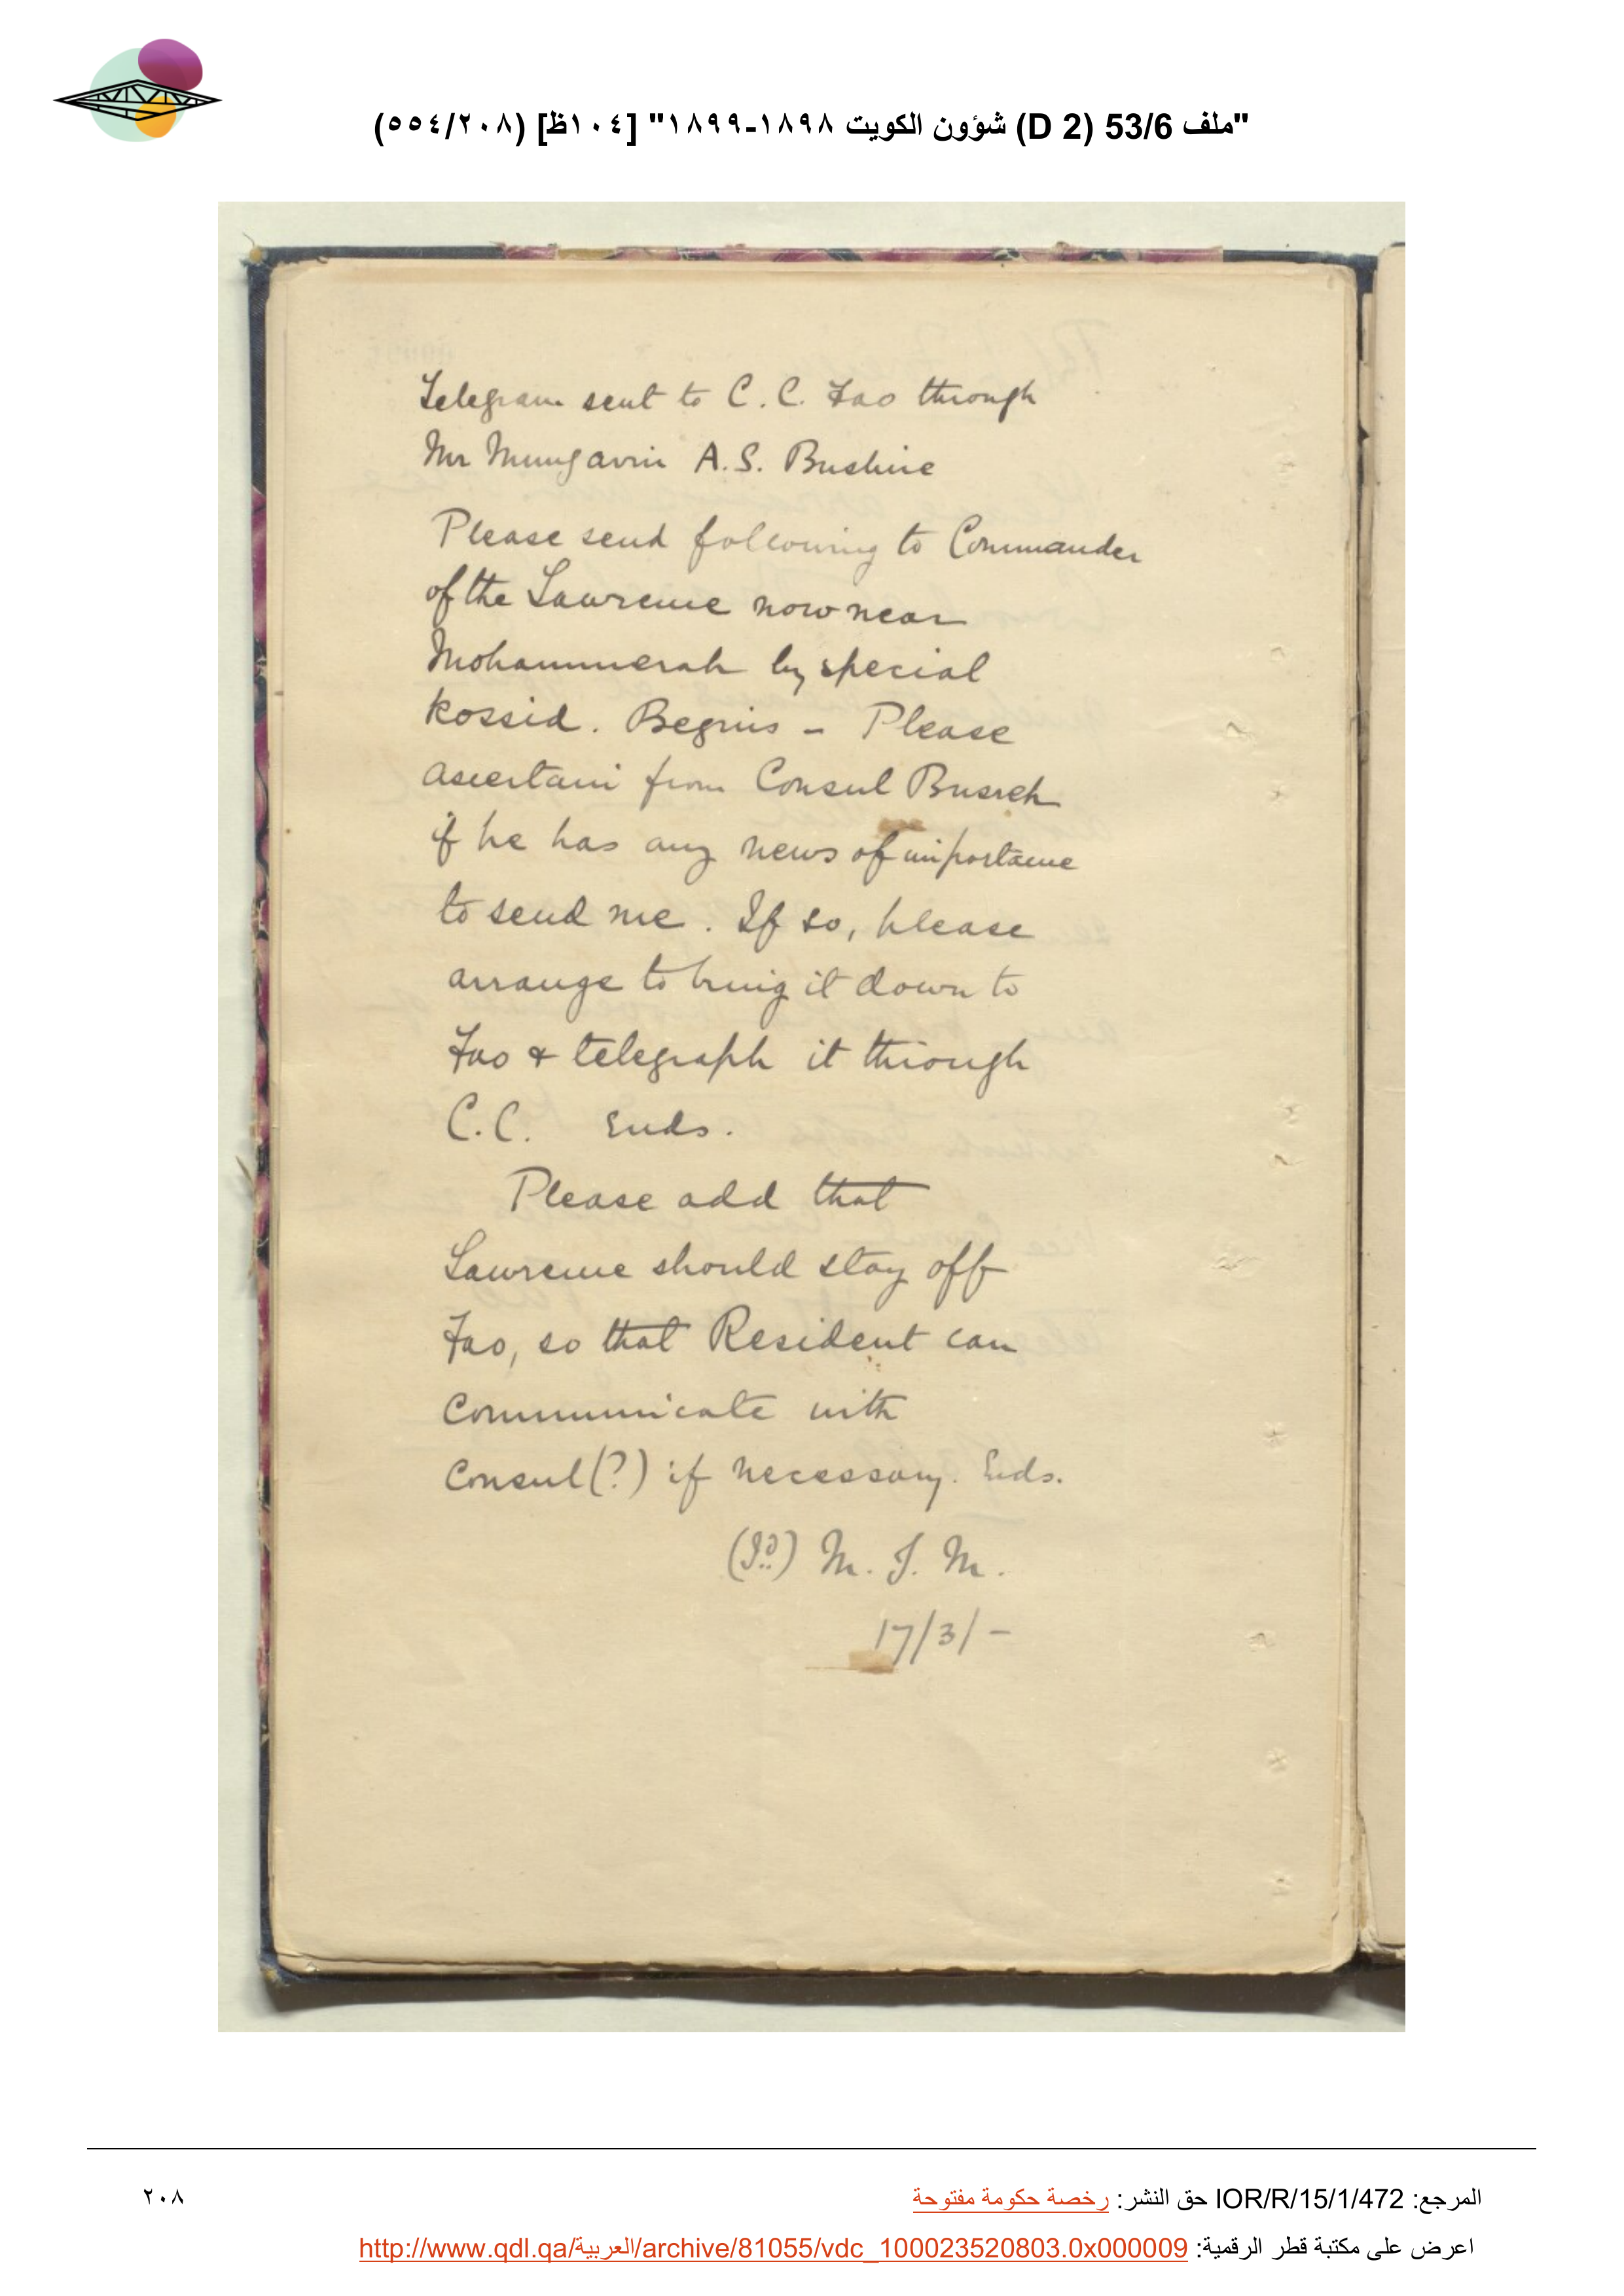 "ملف 53/6 (D 2) شؤون الكويت ١٨٩٨-١٨٩٩" [١٠٤ظ] (٥٥٤/٢٠٨)
Telegram sent to C.C. Fao through
Mr Mungavin A.S. Bushire
Please send following to Commander
of the Lawrence now near
Mohammerah by special
Kossid. Begins - Please
ascertain from Consul Busreh
if he has any news of importance
to send me. If so, please
arrange to bring it down to
Fao & telegraph it through
C.C. Ends.
Please add that
Lawrence should stay off
Fao, so that Resident can
communicate with
Consul (?) if necessary. Ends.
(Sd) M. J. M.
17/3/-
المرجع: IOR/R/15/1/472 حق النشر: رخصة حكومة مفتوحة
٢٠٨
اعرض على مكتبة قطر الرقمية: http://www.qdl.qa/العربية/archive/81055/vdc_100023520803.0x000009